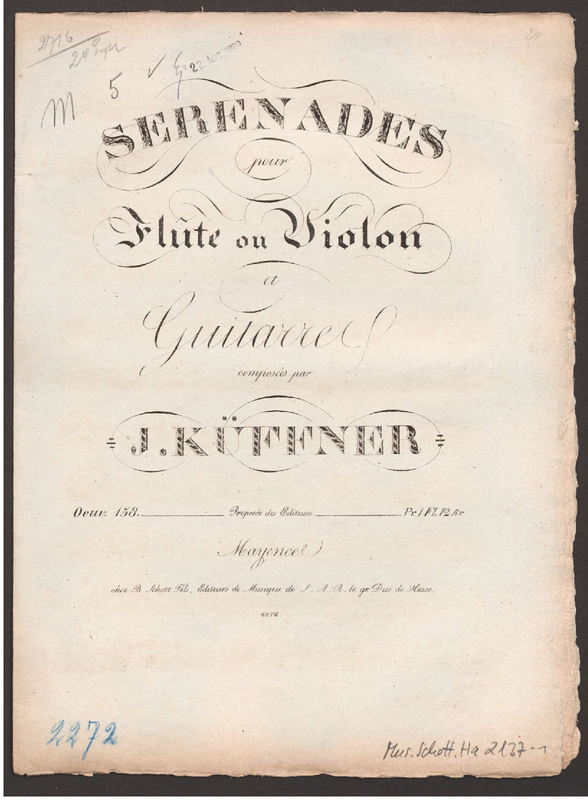 2716
M 5
SERENADES
pour
Flûte ou Violon
et
Guitarre
composées par
J. KÜFFNER
Oeuv. 158. Propriété des Editeurs. Pr. 1 Fl. 12 Kr.
Mayence
chez B. Schott Fils, Editeurs de Musique de S. A. R. le gr. Duc de Hesse.
2272
Mus. Schott. Ha 2137-1